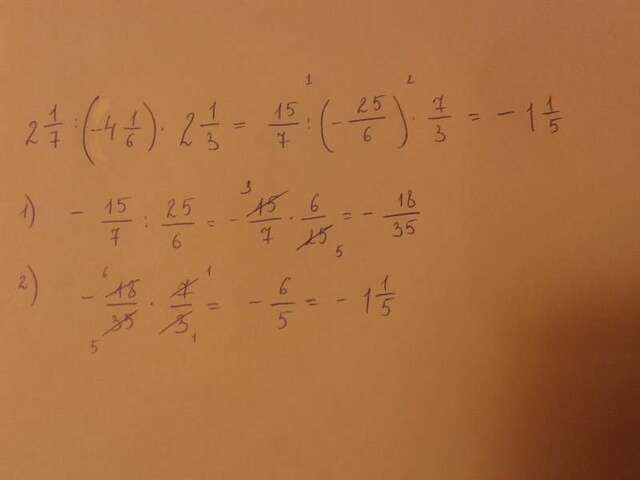 2 1/7 : (-4 1/6) · 2 1/3 = 15/7 : (- 25/6) · 7/3 = - 1 1/5
1) - 15/7 : 25/6 = - 15/7 · 6/25 = - 18/35
2) - 18/35 · 7/3 = - 6/5 = - 1 1/5